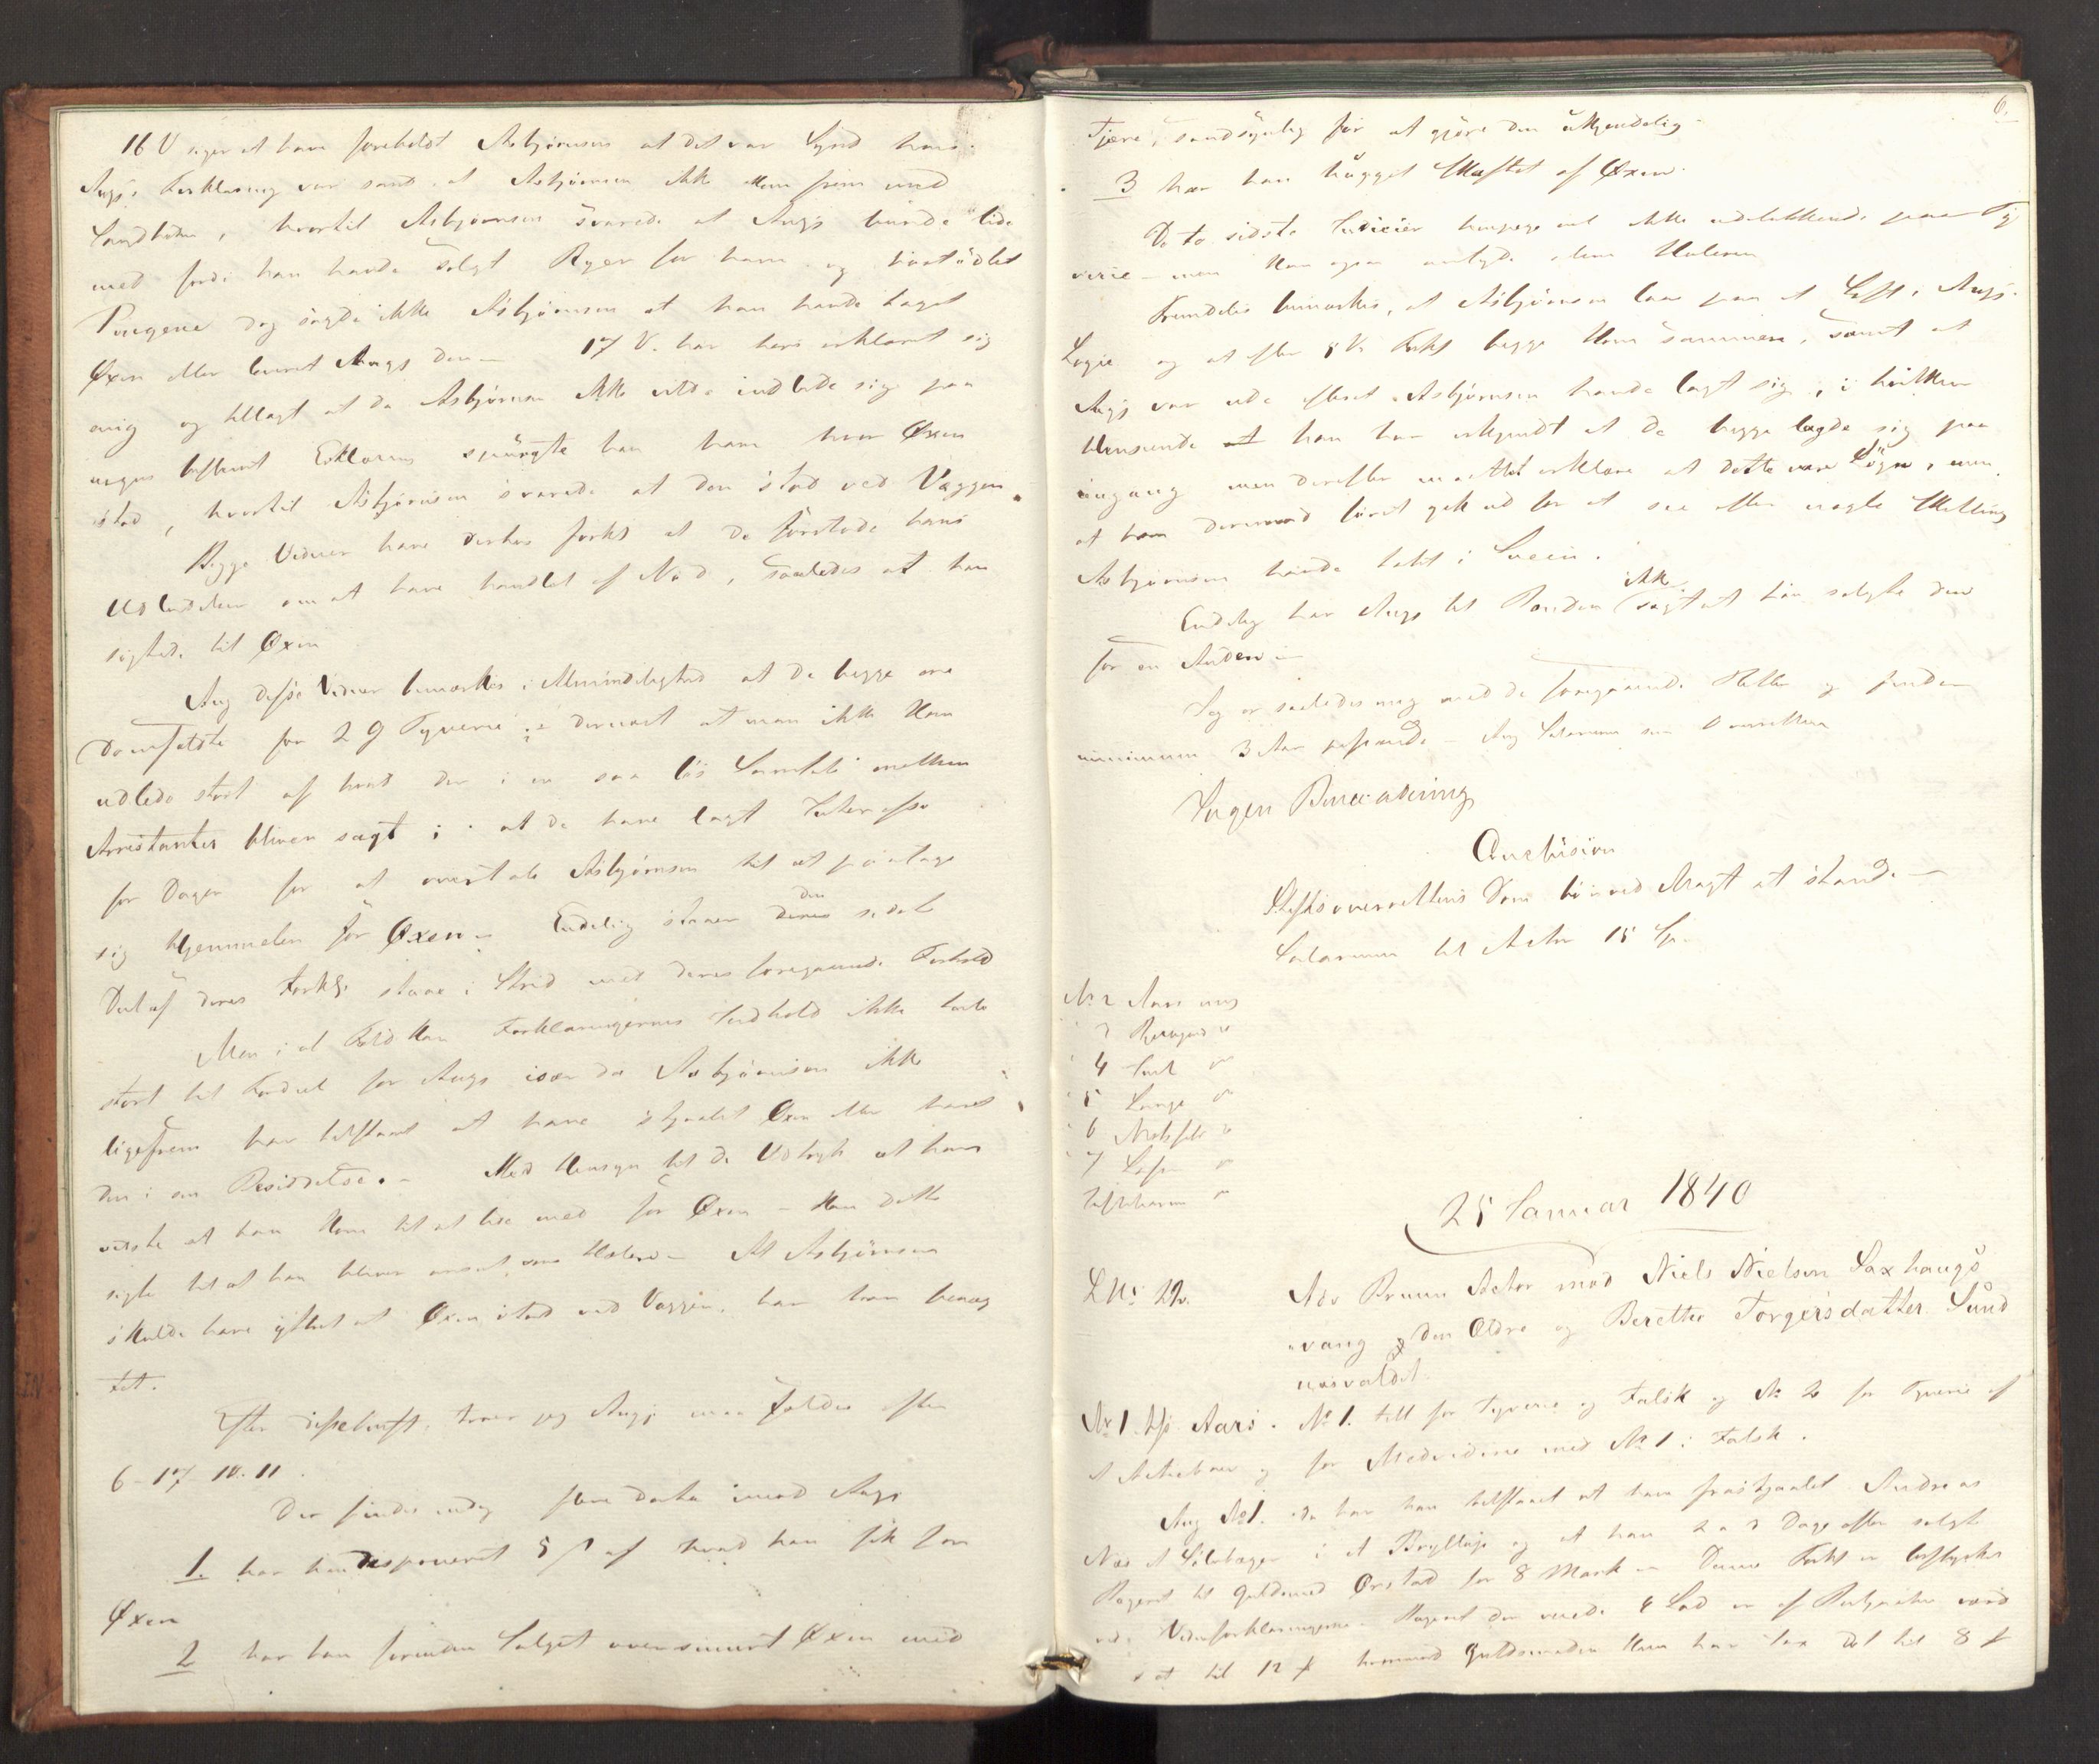 16 V siger at have foreholdt Asbjørnsen at det var Synd hvis
Angs. Forklaring var sand, at Asbjørnsen ikke kom frem med
Sandheden, hvortil Asbjørnsen svarede at Angs kunde lide
med fordi han havde solgt Øxen for ham og
Pengene dog sagde ikke Asbjørnsen at han havde taget
Øxen eller leveret Angs den – 17 V. har hers erklæret sig
enig og tillagt at da Asbjørnsen ikke vilde indlade sig paa
nogen bestemt Erklæring spurgte han ham hvor Øxen
stod, hvortil Asbjørnsen svarede at den stod ved Væggen.
Begge Vidner have derhos forkl at de forstode hans
Udladelser om at have handlet af Nød, saaledes at han
sigtede til Øxen
Ang disse Vidner bemærkes i Almindelighed at de begge ere
Domfældte for 2 G Tyverie; dernæst at man ikke kan
udlede stort af hvad der i en saa løs Samtale mellem
Arrestanter bliver sagt; at de have lagt Interesse
for Dagen for at overtale Asbjørnsen til at paatage
sig Hjemmelen for Øxen – Endelig staaer den sidste
Deel af deres Forklg. staae i Strid med deres foregaaende Forhold
Men i al Fald kan Forklaringernes Indhold ikke tale
stort til Fordeel for Angs især da Asbjørnsen ikke
ligefrem har tilstaaet at have stjaalet Øxen eller havt
den i sin Besiddelse. – Med Hensyn til de Udtryk at han
vidste at han kom til at lide med for Øxen – kan dette
sigte til at han bliver anseet som Hæler – At Asbjørnsen
skulde have yttret at Øxen stod ved Væggen, har han benæg
tet.
Efter disse troer jeg Angs maa fældes efter
6 – 17 – 10. 11.
Der findes endog imod Angs
1. har han disponeret 5 af hvad han fik for
Øxen
2 har han forinden Salget oversmurt Øxen med
6.
Tjære, sandsynlig for at gjøre den ukjendelig –
3 har han hugget Skaftet af Øxen.
De to sidste Indicier henpege vel ikke udelukkende paa Ty
verie – men kan ogsaa antyde slem Hæleren
Fremdeles bemærkes, at Asbjørnsen laae paa et Loft i Angs.
Logie og at efter 8 V. Forkl begge kom sammen, samt at
Angs var ude efterat Asbjørnsen havde lagt sig, i hvilken
Henseende han har erkjendt at de begge lagde sig paa
eengang men derefter maattet erklære at dette var Løgn, men
at han derimod først gik ud for at see efter nogle Skilling
Asbjørnsen havde tabt i Sneen.
Endelig har Angs til Bonden ikke sagt at han solgte den
for en Anden –
Jeg er saaledes enig med de foregaaende Retter og finder
minimum 3 Aar passende – Ang Salarium som Overretten
Ingen Bemærkning
Conclusion
Stiftsoverrettens Dom bør ved Magt at stande –
Salarium til Actor 15 Sp.
No 2 Aars enig
3 Bergegrd
4
5 Lange
6 Motzfeldt
7 Lasson
Justitiarius
25 Januar 1840
L No 22.
Adv Bruun Actor mod Niels Nielsen Saxhaugs
vang den Ældre og Berette Torgersdatter Sund
næsvaldet.
No 1 Ass. Aars. No 1. tilt for Tyverie og Falsk og No 2 for Tyverie af
og for Medvidenhed med No 1 i Falsk.
Ang No 1. da har han tilstaaet at have frastjaalet Andreas
Næs et Sølvbæger i et Bryllup og at han 2 a 3 Dage efter solgte
Bægeret til Guldsmed Ørstad for 8 Mark – Denne Forkl er bestyrket
ved Vidneforklaringerne. Bægeret der veiede 4 Lod er af værd
sat til 12 hvorimod Guldsmeden kun har tax det til 8